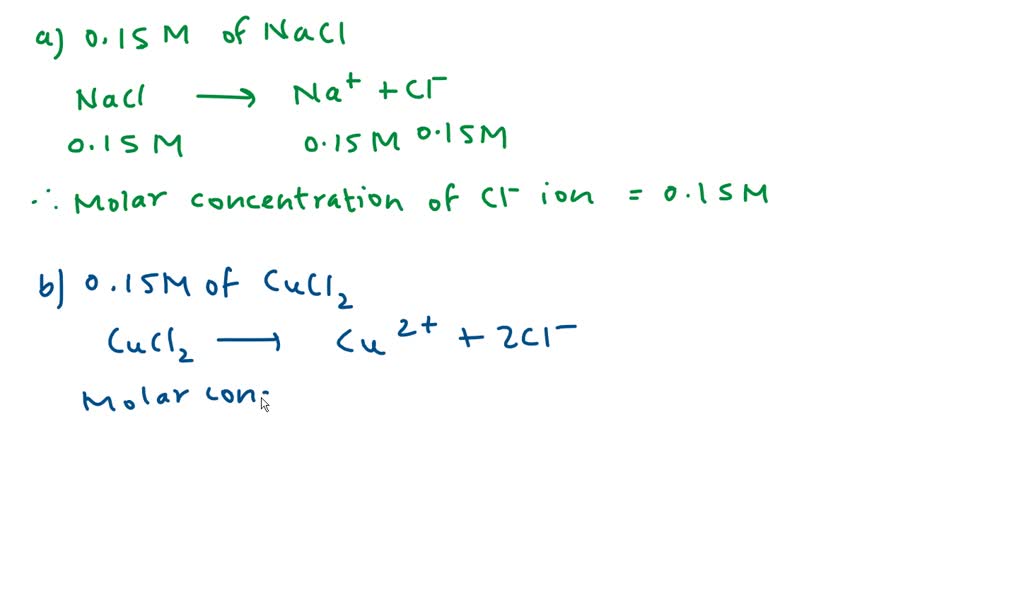 a) 0.15 M of NaCl
NaCl ⟶ Na⁺ + Cl⁻
0.15 M 0.15 M 0.15 M
∴ Molar concentration of Cl⁻ ion = 0.15 M
b) 0.15M of CuCl₂
CuCl₂ ⟶ Cu²⁺ + 2Cl⁻
Molar con